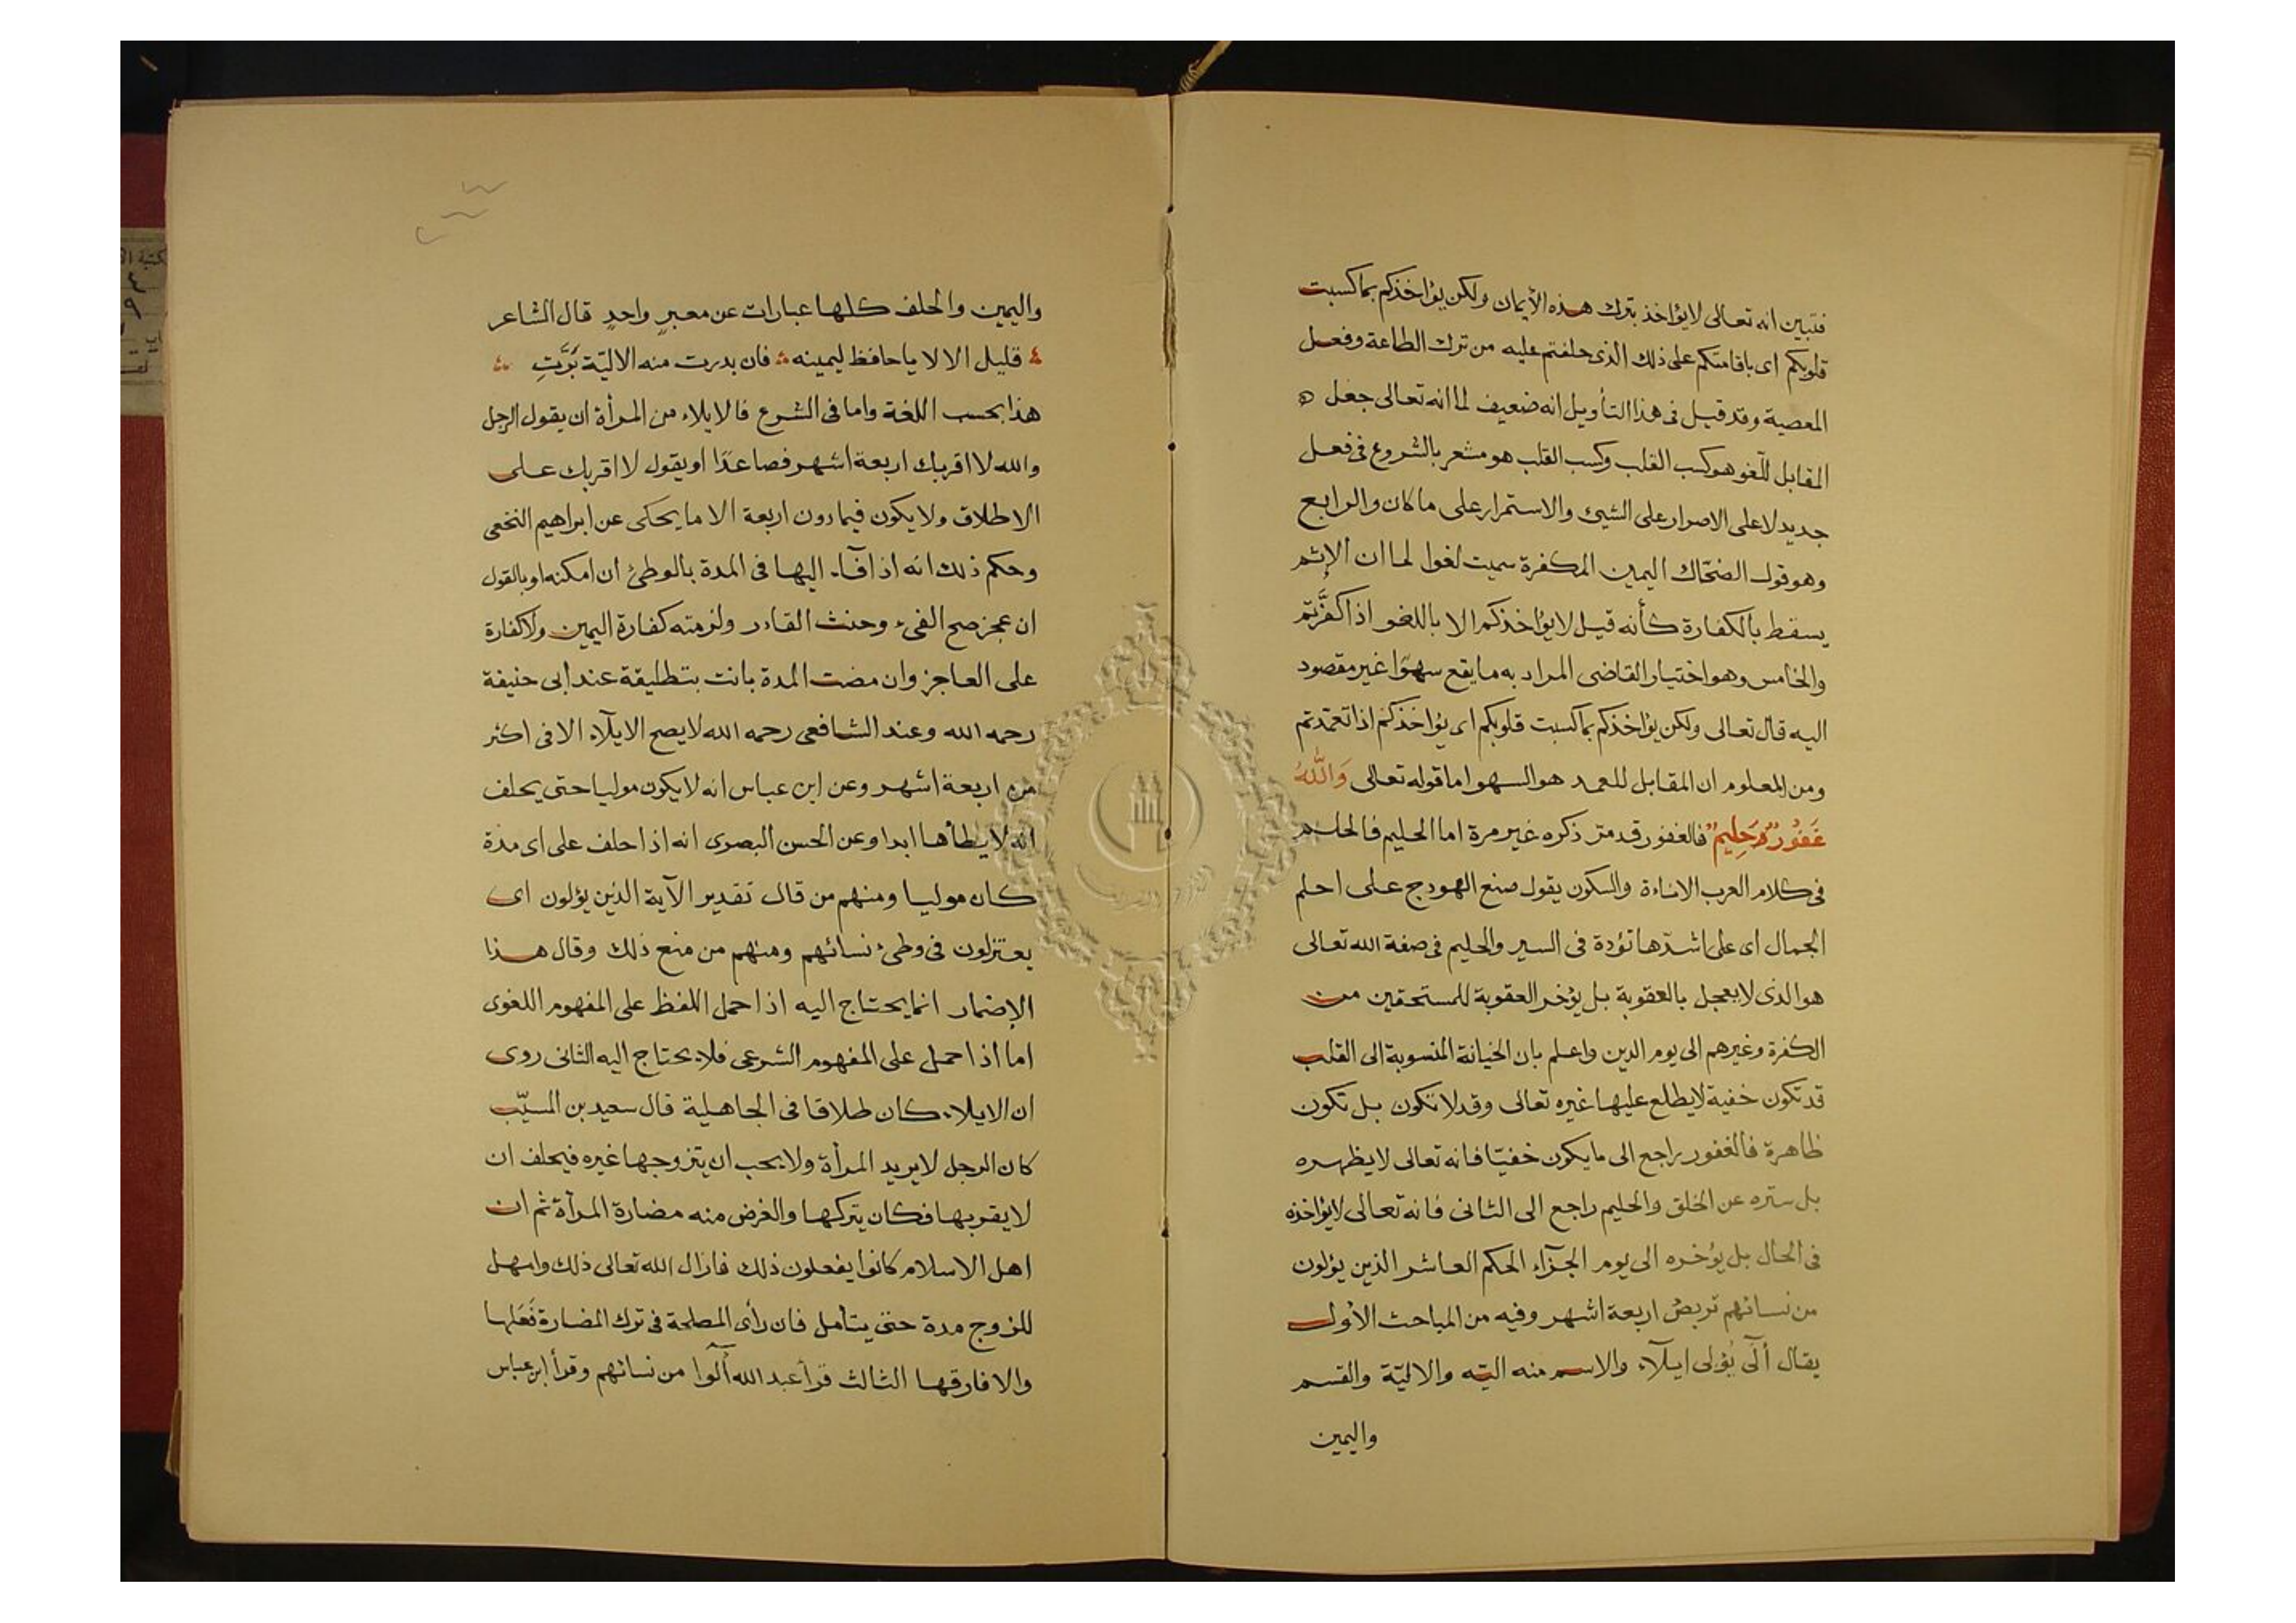 فتبين انه تعالى لايؤاخذ بترك هذه الأيمان ولكن يؤاخذكم بما كسبت
قلوبكم اى باقامتكم على ذلك الذى حلفتم عليه من ترك الطاعة وفعل
المعصية وقد قيل فى هذا التأويل انه ضعيف لما انه تعالى جعل
المقابل للّغو هو كسب القلب وكسب القلب هو مشعر بالشروع فى فعل
جديد لا على الاصرار على الشيئ والاستمرار على ما كان والرابع
وهو قول الضحّاك اليمين المكفرة سميت لغوا لما ان الإثم
يسقط بالكفارة كأنه قيل لايؤاخذكم الا باللغو اذا كفَّرتم
والخامس وهو اختيار القاضى المراد به ما يقع سهوًا غير مقصود
اليه قال تعالى ولكن يؤاخذكم بما كسبت قلوبكم اى يؤاخذكم اذا تعمّدتم
ومن المعلوم ان المقابل للعمد هو السهو اما قوله تعالى وَاللّٰهُ
غَفُورٌ حَلِيمٌ فالغفور قد مرّ ذكره غير مرة اما الحليم فالحلم
فى كلام العرب الاناءة والسكون يقول صنع الهودج على احلم
الجمال اى على اشدّها تؤدة فى السير والحليم فى صفة الله تعالى
هو الذى لايعجل بالعقوبة بل يؤخر العقوبة للمستحقين من
الكفرة وغيرهم الى يوم الدين واعلم بان الخيانة المنسوبة الى القلب
قد تكون خفية لايطلع عليها غيره تعالى وقد لاتكون بل تكون
ظاهرة فالغفور راجع الى ما يكون خفيّا فانه تعالى لايظهره
بل ستره عن الخلق والحليم راجع الى الثانى فانه تعالى لايؤاخذه
فى الحال بل يؤخره الى يوم الجزآء الحكم العاشر الذين يؤلون
من نسائهم تربص اربعة اشهر وفيه من المباحث الأول
يقال آلَى يُؤلى ايلآء والاسم منه اليّه والاليّة والقسم
واليمين
واليمين والحلف كلها عبارات عن معبرٍ واحدٍ قال الشاعر
قليل الالا يا حافظ ليمينه فان بدرت منه الاليّة بَرَّتِ
هذا بحسب اللغة واما فى الشرع فالايلاء من المرأة ان يقول الرجل
والله لا اقربك اربعة اشهر فصاعدًا او يقول لا اقربك على
الاطلاق ولا يكون فيما دون اربعة الا ما يحكى عن ابراهيم النخعى
وحكم ذلك انه اذا فآء اليها فى المدة بالوطئ ان امكنه او بالقول
ان عجز صح الفىء وحنث القادر ولزمته كفارة اليمين ولا كفارة
على العاجز وان مضت المدة بانت بتطليقة عند ابى حنيفة
رحمه الله وعند الشافعى رحمه الله لايصح الايلآء الا فى اكثر
من اربعة اشهر وعن ابن عباس انه لايكون موليا حتى يحلف
انه لا يطأها ابدا وعن الحسن البصرى انه اذا حلف على اى مدة
كان موليا ومنهم من قال تقدير الآية الذين يؤلون اى
يعتزلون فى وطئ نسائهم ومنهم من منع ذلك وقال هذا
الإضمار انما يحتاج اليه اذا حمل اللفظ على المفهوم اللغوى
اما اذا حمل على المفهوم الشرعى فلا يحتاج اليه الثانى روى
ان الايلاء كان طلاقا فى الجاهلية قال سعيد بن المسيّب
كان الرجل لايريد المرأة ولا يحب ان يتزوجها غيره فيحلف ان
لايقربها فكان يتركها والغرض منه مضارة المرأة ثم ان
اهل الاسلام كانوا يفعلون ذلك فازال الله تعالى ذلك وامهل
للزوج مدة حتى يتأمل فان رأى المصلحة فى ترك المضارة فَعَلها
والا فارقها الثالث قرأ عبد الله آلوا من نسائهم وقرأ ابن عباس